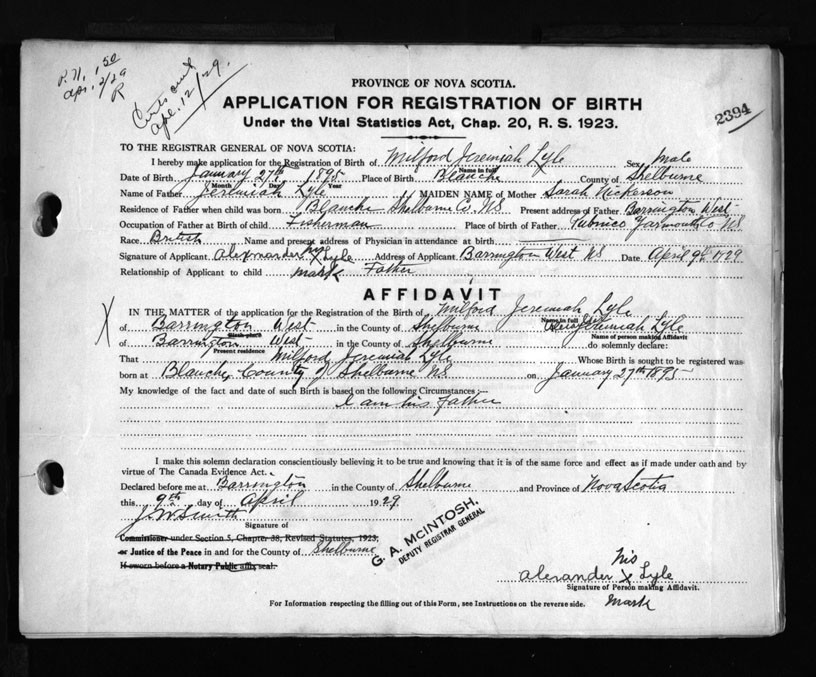 P.N. 1 50
Apr. 2/29
R
Certs and
Apl. 12/29.
2394
PROVINCE OF NOVA SCOTIA.
APPLICATION FOR REGISTRATION OF BIRTH
Under the Vital Statistics Act, Chap. 20, R. S. 1923.
TO THE REGISTRAR GENERAL OF NOVA SCOTIA:
I hereby make application for the Registration of Birth of Milford Jeremiah Lyle Sex Male
Name in full
Date of Birth January 27th 1895 Place of Birth Blanche County of Shelburne
Month Day Year
Name of Father Jeremiah Lyle MAIDEN NAME of Mother Sarah Nickerson
Residence of Father when child was born Blanche Shelburne Co. NS Present address of Father Barrington West
Occupation of Father at Birth of child Fisherman Place of birth of Father Pubnico Yarmouth Co NS
Race British Name and present address of Physician in attendance at birth
Signature of Applicant Alexander his X Lyle Address of Applicant Barrington West NS Date April 9th 1929
Relationship of Applicant to child mark Father
AFFIDAVIT
X
IN THE MATTER of the application for the Registration of the Birth of Milford Jeremiah Lyle
Name in full
of Barrington West in the County of Shelburne Jeremiah Lyle
Birth place Name of person making Affidavit
of Barrington West in the County of Shelburne do solemnly declare:
Present residence
That Milford Jeremiah Lyle Whose Birth is sought to be registered was
born at Blanche, County of Shelburne NS on January 27th 1895
My knowledge of the fact and date of such Birth is based on the following Circumstances:
I am his Father
I make this solemn declaration conscientiously believing it to be true and knowing that it is of the same force and effect as if made under oath and by
virtue of The Canada Evidence Act.
Declared before me at Barrington in the County of Shelburne and Province of Nova Scotia
this 9th day of April 1929
J. W. Smith
Signature of
Commissioner under Section 5, Chapter 38, Revised Statutes, 1923,
or Justice of the Peace in and for the County of Shelburne
If sworn before a Notary Public affix seal.
G. A. McINTOSH,
DEPUTY REGISTRAR GENERAL
his
Alexander X Lyle
Signature of Person making Affidavit.
mark
For Information respecting the filling out of this Form, see Instructions on the reverse side.